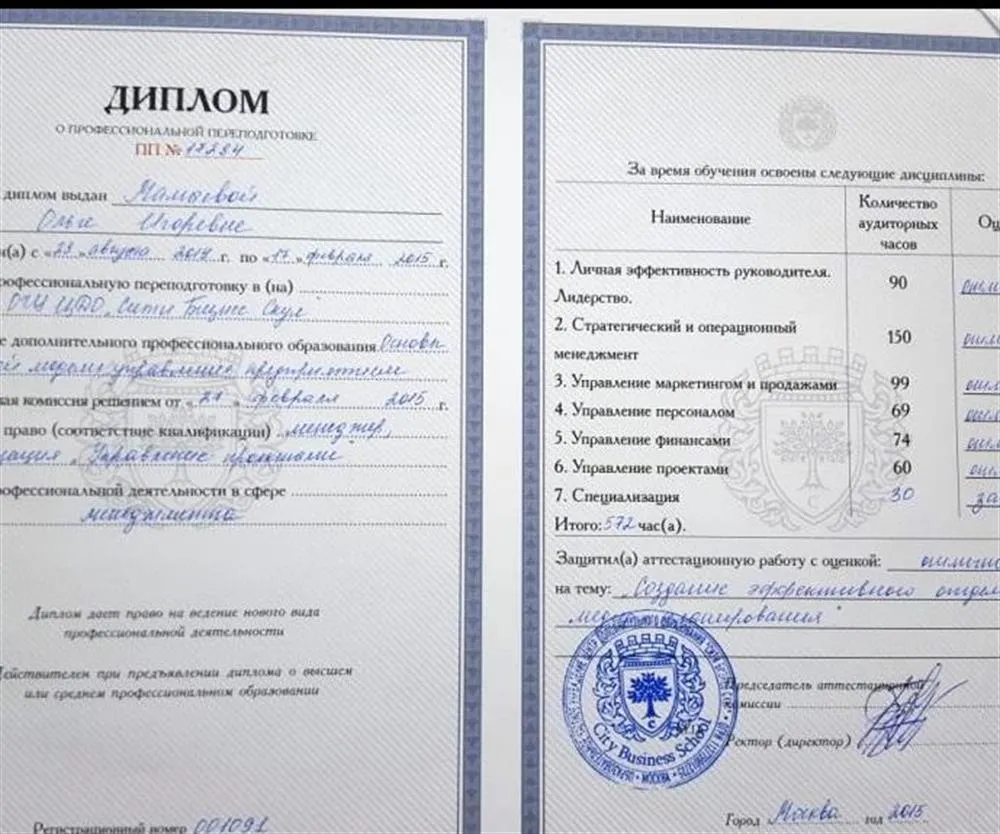 ДИПЛОМ
О ПРОФЕССИОНАЛЬНОЙ ПЕРЕПОДГОТОВКЕ
ПП № 17284
диплом выдан Мамаевой
Ольге Игоревне
(а) с «29» августа 2014 г. по «17» февраля 2015 г.
рофессиональную переподготовку в (на)
ОГЦ ЦДО Сити Бизнес Скул
е дополнительного профессионального образования Основы
ой модели управления предприятием
ая комиссия решением от «27» февраля 2015 г.
право (соответствие квалификации) менеджер,
зация Управление проектами
рофессиональной деятельности в сфере
менеджмента
Диплом дает право на ведение нового вида
профессиональной деятельности
Действителен при предъявлении диплома о высшем
или среднем профессиональном образовании
Регистрационный номер 001091
За время обучения освоены следующие дисциплины:
Наименование Количество аудиторных часов Оц
1. Личная эффективность руководителя. Лидерство. 90
2. Стратегический и операционный менеджмент 150
3. Управление маркетингом и продажами 99
4. Управление персоналом 69
5. Управление финансами 74
6. Управление проектами 60
7. Специализация 30 за
Итого: 572 час(а).
Защитил(а) аттестационную работу с оценкой: отлично
на тему: „Создание эффективного отдела
планирования"
City Business School
МОСКВА
Председатель аттестационной
комиссии
Ректор (директор)
Город Москва год 2015